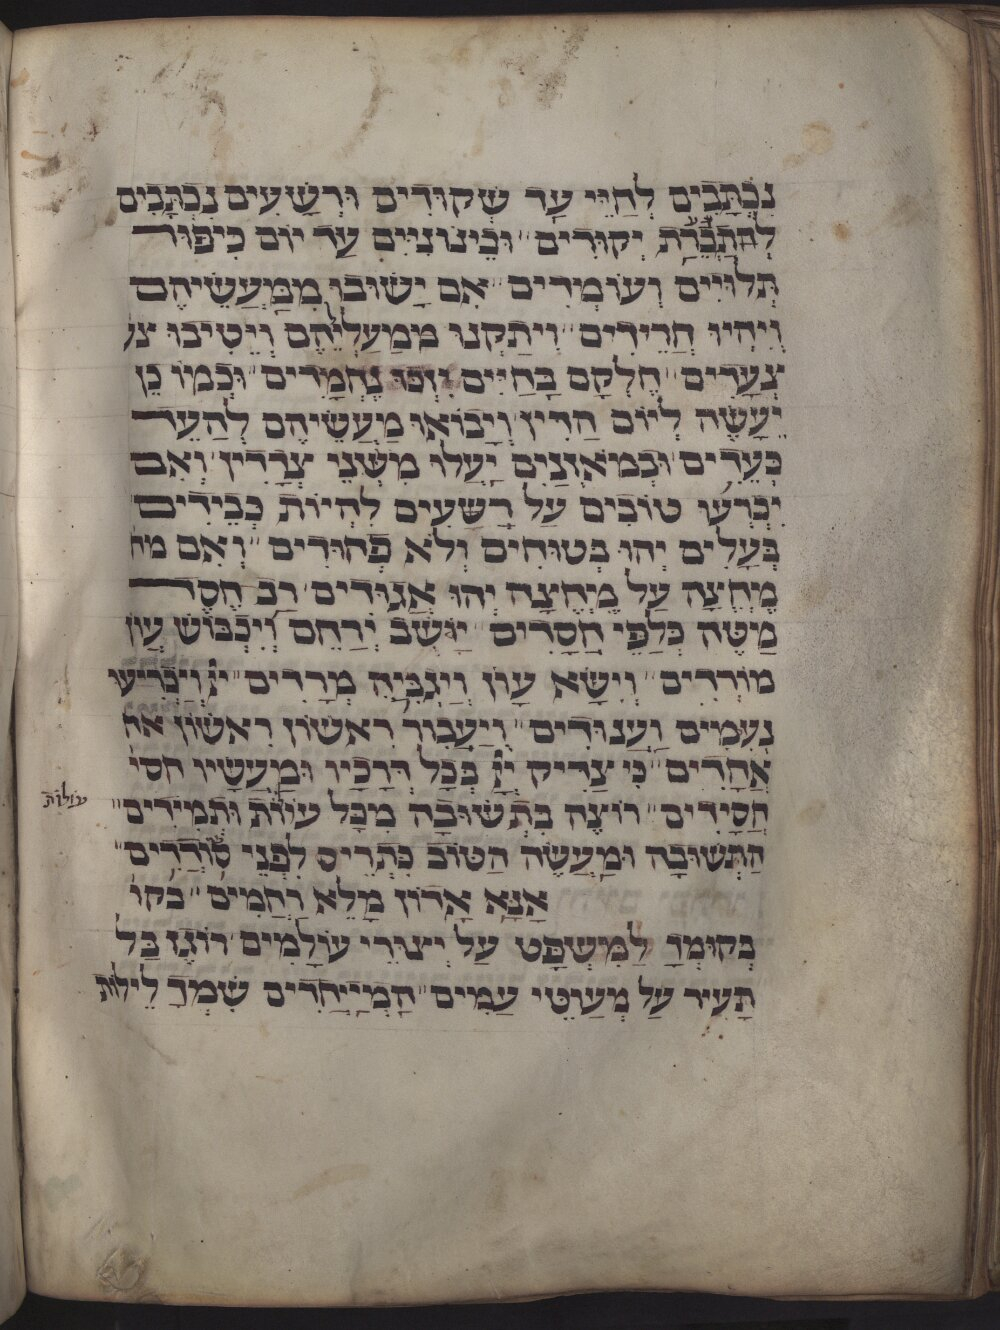 נִכְתָּבִים לְחַיֵּי עַד שְׁקוּדִים וּרְשָׁעִים נִכְתָּבִים
יְקוּדִים״ וּבֵינוֹנִיִּים עַד יוֹם כִּיפּוּר
תְּלוּיִים וְעוֹמְדִים״ אִם יָשׁוּבוּ מִמַּעֲשֵׂיהֶם
וְיִהְיוּ חֲרֵידִים״ וִיתַקְּנוּ מִמַּעַלְלֵיהֶם וְיֵטִיבוּ צע
צְעָדִים״ חֶלְקָם בָּחַיִּים נֶחְמָדִים״ וּכְמוֹ כֵן
יֵעָשֶׂה לְיוֹם הַדִּין וְיָבוֹאוּ מַעֲשֵׂיהֶם לְהָעֵד
כְּעֵדִים׳ וּבְמֹאזְנַיִם יַעֲלוּ מִשְּׁנֵי צְדָדִין׳ וְאִם
יַכְרִיעוּ טוֹבִים עַל רְשָׁעִים לִהְיוֹת כְּבֵידִים
בְּעָלִים יְהוּ בְּטוּחִים וְלֹא פְּחוּדִים״ וְאִם מח
מֶחֱצָה עַל מֶחֱצָה יְהוּ אֲגוּדִים׳ רַב חֶסֶד
מַטֶּה כְּלַפֵּי חֲסָדִים״ יָשׁוּב יְרַחֵם וְיִכְבּוֹשׁ עָון
מוֹרְדִים״ וְיִשָּׂא עָוֹן וְיַגְבִּיהַּ מְרָדִים״ וְיַכְרִיעוּ
נְעִמִים וַעֲנוּדִים״ וְיַעֲבִיר רִאשׁוֹן רִאשׁוֹן אח
אֲחָדִים״ כִּי צַדִּיק יְיָ בְּכָל דְּרָכָיו וּמַעֲשָׂיו חסי
חֲסִידִים״ רוֹצֶה בִּתְשׁוּבָה מִכָּל עוֹלוֹת וּתְמִידִים״
עולות
הַתְּשׁוּבָה וּמַעֲשֶׂה הַטּוֹב כִּתְרִיס לִפְנֵי סוֹרְדִים״
אָנָּא אָדוֹן מָלֵא רַחֲמִים״ בקו
בְּקוּמְךָ לַמִּשְׁפָּט עַל יְצוּרֵי עוֹלָמִים״ רוֹגֶז בַּל
תָּעִיר עַל מְעוּטֵי עַמִּים״ הַמְיַיחֲדִים שִׁמְךָ לֵילות